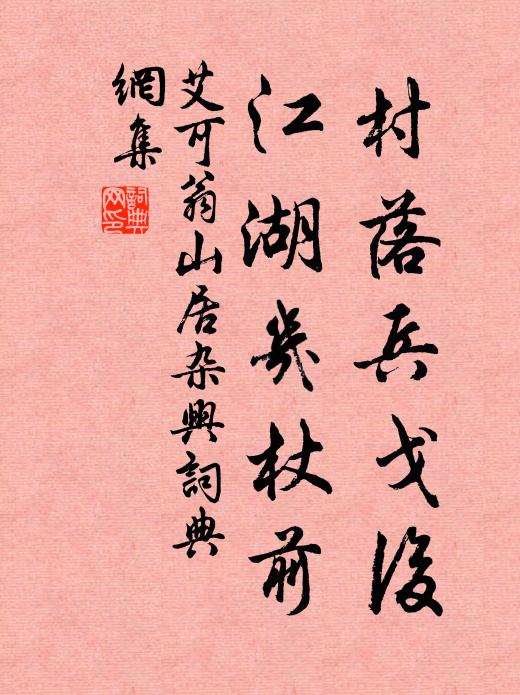 村落兵戈後
江湖几杖前
艾可翁山居杂興詞典
網集
詞典
网印